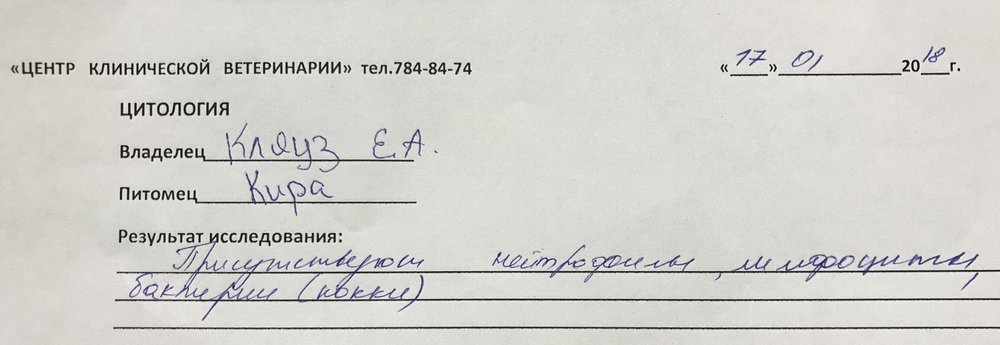 «ЦЕНТР КЛИНИЧЕСКОЙ ВЕТЕРИНАРИИ» тел.784-84-74 «17» 01 2018 г.
ЦИТОЛОГИЯ
Владелец Кляуз Е.А.
Питомец Кира
Результат исследования:
Присутствуют нейтрофилы, лимфоциты,
бактерии (кокки)